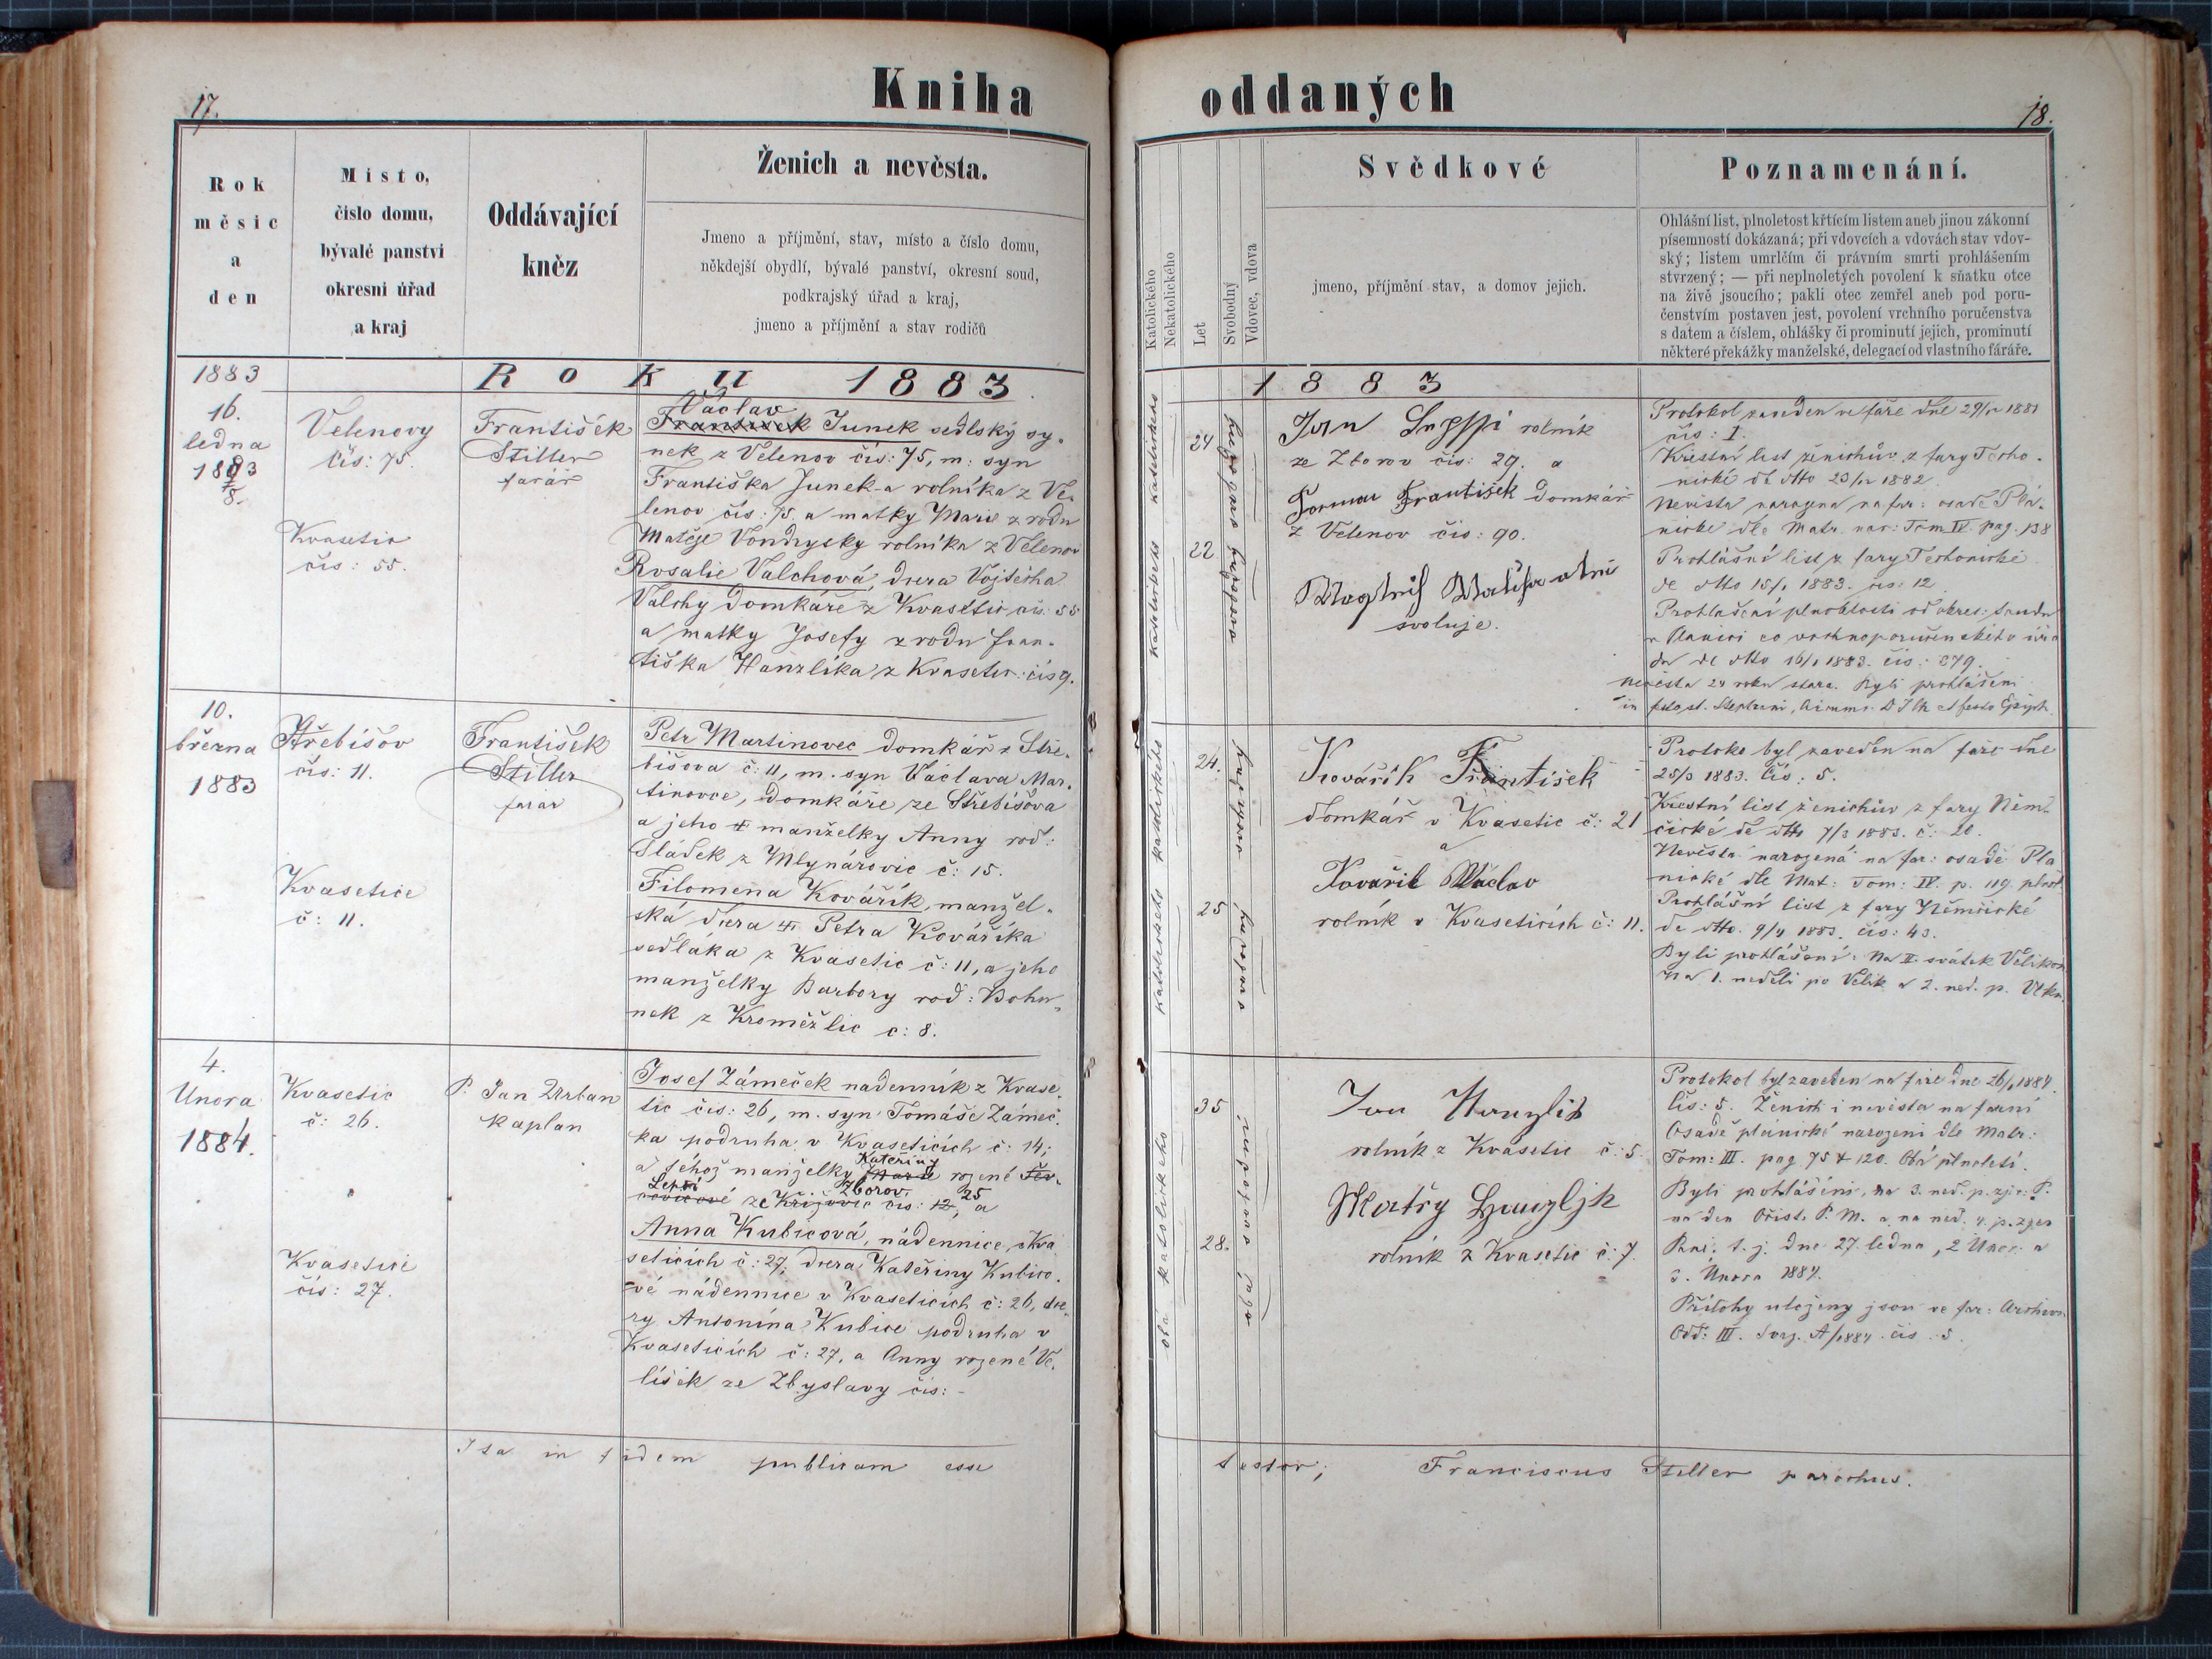 Kniha oddaných
17.
18.
Rok
měsíc
a
den
Místo,
číslo domu,
bývalé panství
okresní úřad
a kraj
Oddávající
kněz
Ženich a nevěsta.
Jmeno a příjmění, stav, místo a číslo domu,
někdejší obydlí, bývalé panství, okresní soud,
podkrajský úřad a kraj,
jmeno a příjmění a stav rodičů
Katolického
Nekatolického
Let
Svobodný
Vdovec, vdova
Svědkové
jmeno, příjmění stav, a domov jejich.
Poznamenání.
Ohlášní list, plnoletost křtícím listem aneb jinou zákonní
písemností dokázaná; při vdovcích a vdovách stav vdov-
ský; listem umrlčím či právním smrti prohlášením
stvrzený; — při neplnoletých povolení k sňatku otce
na živě jsoucího; pakli otec zemřel aneb pod poru-
čenstvím postaven jest, povolení vrchního poručenstva
s datem a číslem, ohlášky či prominutí jejich, prominutí
některé překážky manželské, delegací od vlastního faráře.
1883
Roku 1883
1883
16.
ledna
1883
Velenovy
čís: 75.
Kvasetic
čís: 55.
František
Stiller
farář
Václav
František Junek sedlský sy-
nek z Velenov čís: 75, m: syn
Františka Junek-a rolníka z Ve-
lenov čís: 75. a matky Marie z rodu
Matěje Vondrysky rolníka z Velenov
Rosalie Valchová, dcera Vojtěcha
Valchy domkáře z Kvasetic čís: 55
a matky Josefy z rodu Fran-
tiška Hanzlíka z Kvasetic: čís 9.
24
22
Jan
rolník
ze Zborov čís: 29. a
František domkář
z Velenov čís: 90.
svoluje.
Protokol zaveden na faře dne
čís: 1.
Křestní list ženichův z fary
Nevěsta narozena na far: osadě Plá-
nické dle Matr. nar: Tom IV. pag. 138
Prohlášní list z fary
1883. čís: 12
1883. čís: 379.
nevěsta 24 roku stara. Byli prohlášeni
10.
března
1883
Střebišov
čís: 11.
Kvasetice
č: 11.
František
Stiller
farář
Petr Martinovec domkář z Stře-
bišova č: 11, m. syn Václava Mar-
tinovce, domkáře ze Střebišova
a jeho † manželky Anny rod:
Sládek z Mlynářovic č: 15.
Filomena Kovářík, manžel-
ská dcera † Petra Kováříka
sedláka z Kvasetic č: 11, a jeho
manželky Barbory rod: Bohu-
nek z Kroměžlic č: 8.
24.
25
Kovářík František
domkář v Kvasetic č: 21
a
Kovařík Václav
rolník v Kvaseticích č: 11.
Protoko byl zaveden na faře dne
25/3 1883. čís: 5.
Křestní list ženichův z fary Něm-
čické de dtto 7/3 1883. č: 20.
Nevěsta narozená na far: osadě Pla
nické dle Mat: Tom: IV. p. 119.
Prohlášní list z fary Němčické
de dtto. 9/4 1883. čís: 43.
Byli prohlášení: Na II. svátek Velikon.
na 1. neděli po Velik a 2. ned. p. Velkn.
4.
Února
1884.
Kvasetic
č: 26.
Kvasetice
čís: 27.
P. Jan Urban
kaplan
Josef Zámeček nadenník z Kvase-
tic čís: 26, m. syn Tomáše Zámeč-
ka podruha v Kvaseticích č: 14;
Kateřiny
a téhož manželky Marie rozené
Zborov 25
ze Křižovic čís: 12, a
Anna Kubicová, nádennice, z Kva
seticích č: 27; dcera Kateřiny Kubico-
vé nádennice v Kvaseticích č: 26, dce-
ry Antonína Kubice podruha v
Kvaseticích č: 27, a Anny rozené Ve-
líšek ze Zbyslavy čís: -
35
28.
oba katolického
Jan Hanzlik
rolník z Kvásetic č: 5
Hanzljk
rolník z Kvasetic č: 7.
Protokol byl zaveden na faře dne 26/1 1884
čís: 5. Ženich i nevěsta na farní
Osadě plánické narozeni dle Matr:
Tom: III. pag 75 & 120. Oba plnoletí.
Byli prohlášeni, na 3. ned. p. zjev: P.
na den Očist. P. M. a na ned. 4. p. zjev
Páně. t. j. dne 27. ledna, 2 Unor: a
3. Února 1884.
Přílohy uloženy jsou ve far: Archivu
Odd: III. Svaz. A/1884. čís. 5.
Ita in fidem publicam esse testor; Franciscus Stiller parochus.